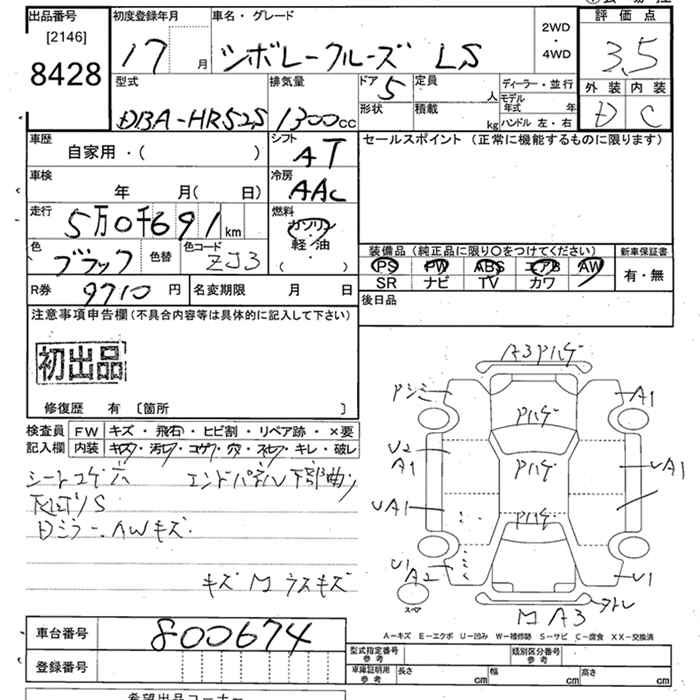 出品番号 初度登録年月 車名・グレード 2WD・4WD 評価点
[2146]
8428
17 月 シボレークルーズ LS 3.5
型式 排気量 ドア 定員 人 ディーラー・並行 外装 内装
DBA-HR52S 1300cc 5 モデル年式 年 D C
形状 積載 kg ハンドル 左・右
車歴 シフト セールスポイント (正常に機能するものに限ります)
自家用・( ) AT
車検 冷房
年 月( 日) AAC
走行 燃料
5万0千691km ガソリン・軽・油 ( )
色 色替 色コード 装備品 (純正品に限り○をつけてください) 新車保証書
ブラック ZJ3 PS PW ABS エアB AW 有・無
SR ナビ TV カワ
R券 9710円 名変期限 月 日 後日品
注意事項申告欄 (不具合内容等は具体的に記入して下さい)
初出品
修復歴 有 [箇所 ]
検査員記入欄 FW キズ・飛石・ヒビ割・リペア跡・×要
内装 キズ・汚レ・コゲ・穴・スレ・キレ・破レ
シートコゲ穴 エンドパネル下部曲り
Dミラー、AWキズ
キズ M ラスキズ
A3Pハゲ
A1
Pハゲ
U2
A1
Pハゲ
UA1
UA1
Pハゲ
U1
A2
U1
スペア
M A3
A-キズ E-エクボ U-凹み W-補修跡 S-サビ C-腐食 XX-交換済
車台番号 800674
型式指定番号 参考 類別区分番号 参考
登録番号 車庫証明用 参考 長さ cm 幅 cm 高さ cm
希望出品コーナー